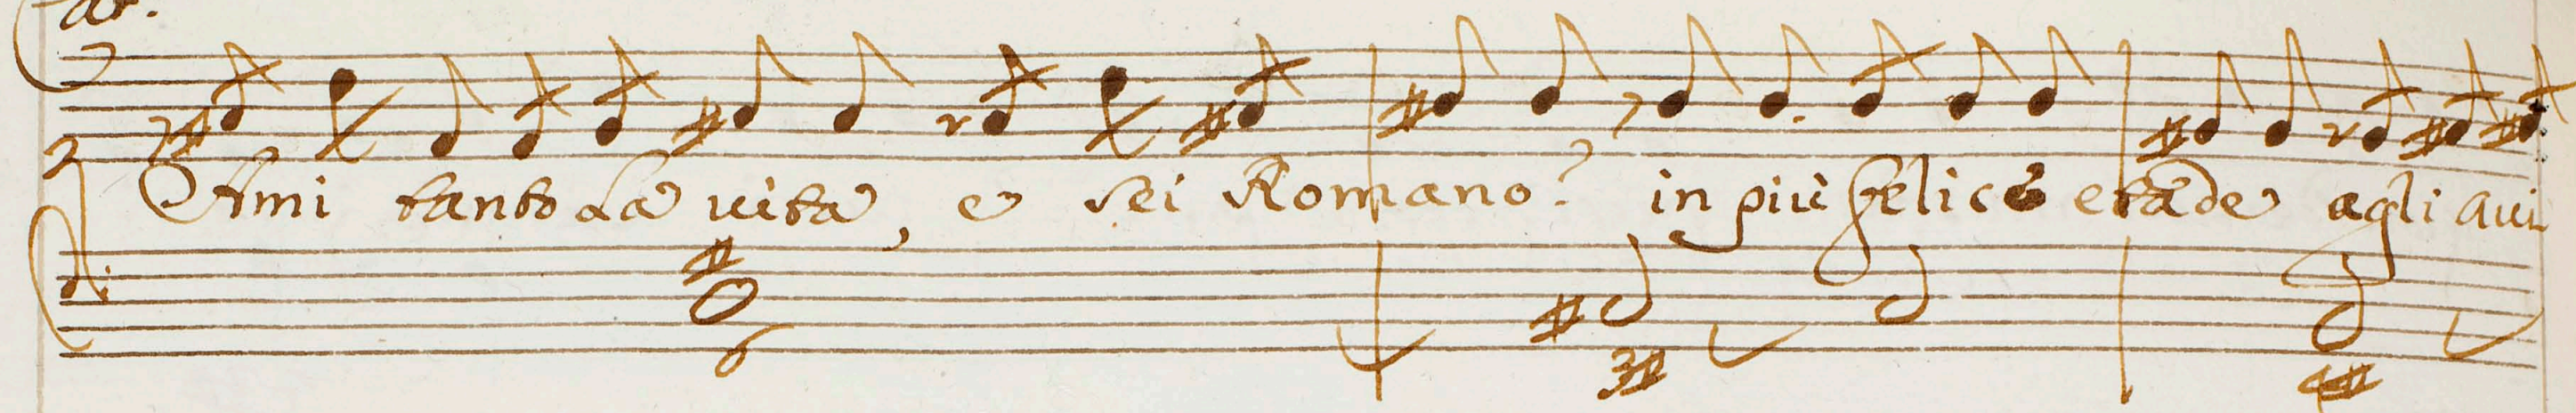 ar.
Ami tanto La uita, e sei Romano? in più felice etade agli aui
6 3# 4#